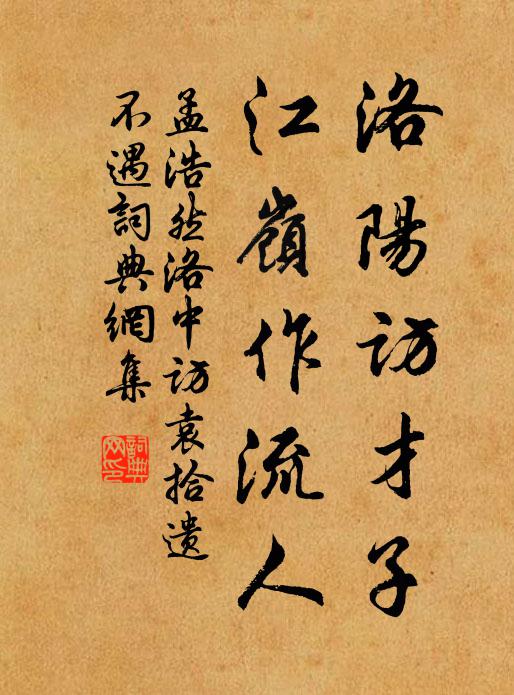 洛陽訪才子
江嶺作流人
孟浩然洛中訪袁拾遺
不遇詞典網集
詞典網印